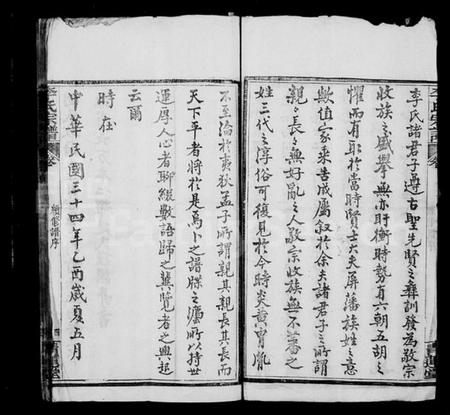 李氏諸君子遵古聖先賢之彝訓發為敬宗
收族之盛舉無亦盱衡時勢有六朝五胡之
懼而有取於當時賢士大夫屏藩族姓之意
歟值家乘告成屬叙於余夫諸君子之所謂
親親長長無好亂之人敬宗收族無不善之
姓三代之淳俗可復見於今時炎黃胄胤
不至淪於夷狄孟子所謂親其親長其長而
天下平者將於是焉卜之譜牒之濂所以持世
運厚人心者聊綴數語歸之冀覽者之興起
云爾
時在
中華民國三十四年乙酉歲夏五月
李氏宗譜
續修譜序
四